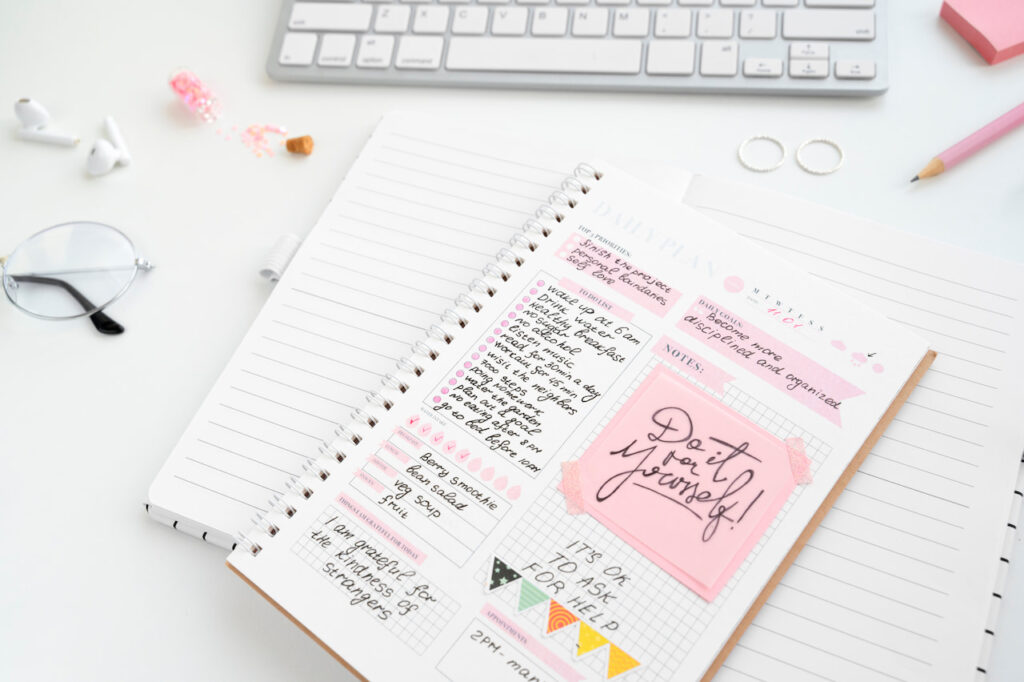 DAILY PLAN
TOP 3 PRIORITIES:
finish the project
personal boundaries
self love
M T W T F S S
DAILY GOALS:
Become more
disciplined and organized
TO DO LIST
wake up at 6 am
Drink water
Healthy breakfast
no sugar
no alcohol
listen music
read for 30min a day
workout for 45 min
visit the neighbors
7000 steps
Doing homework
water the garden
plan out a goal
no eating after 8 PM
go to bed before 10PM
NOTES:
Do it
for
Yourself!
Berry smoothie
bean salad
veg soup
fruit
THINGS I AM GRATEFUL FOR TODAY
I am grateful for
the kindness of
strangers
IT'S OK
TO ASK
FOR HELP
APPOINTMENTS
2PM-
Z
X
C
V
B
N
M
control
option
command
command
option